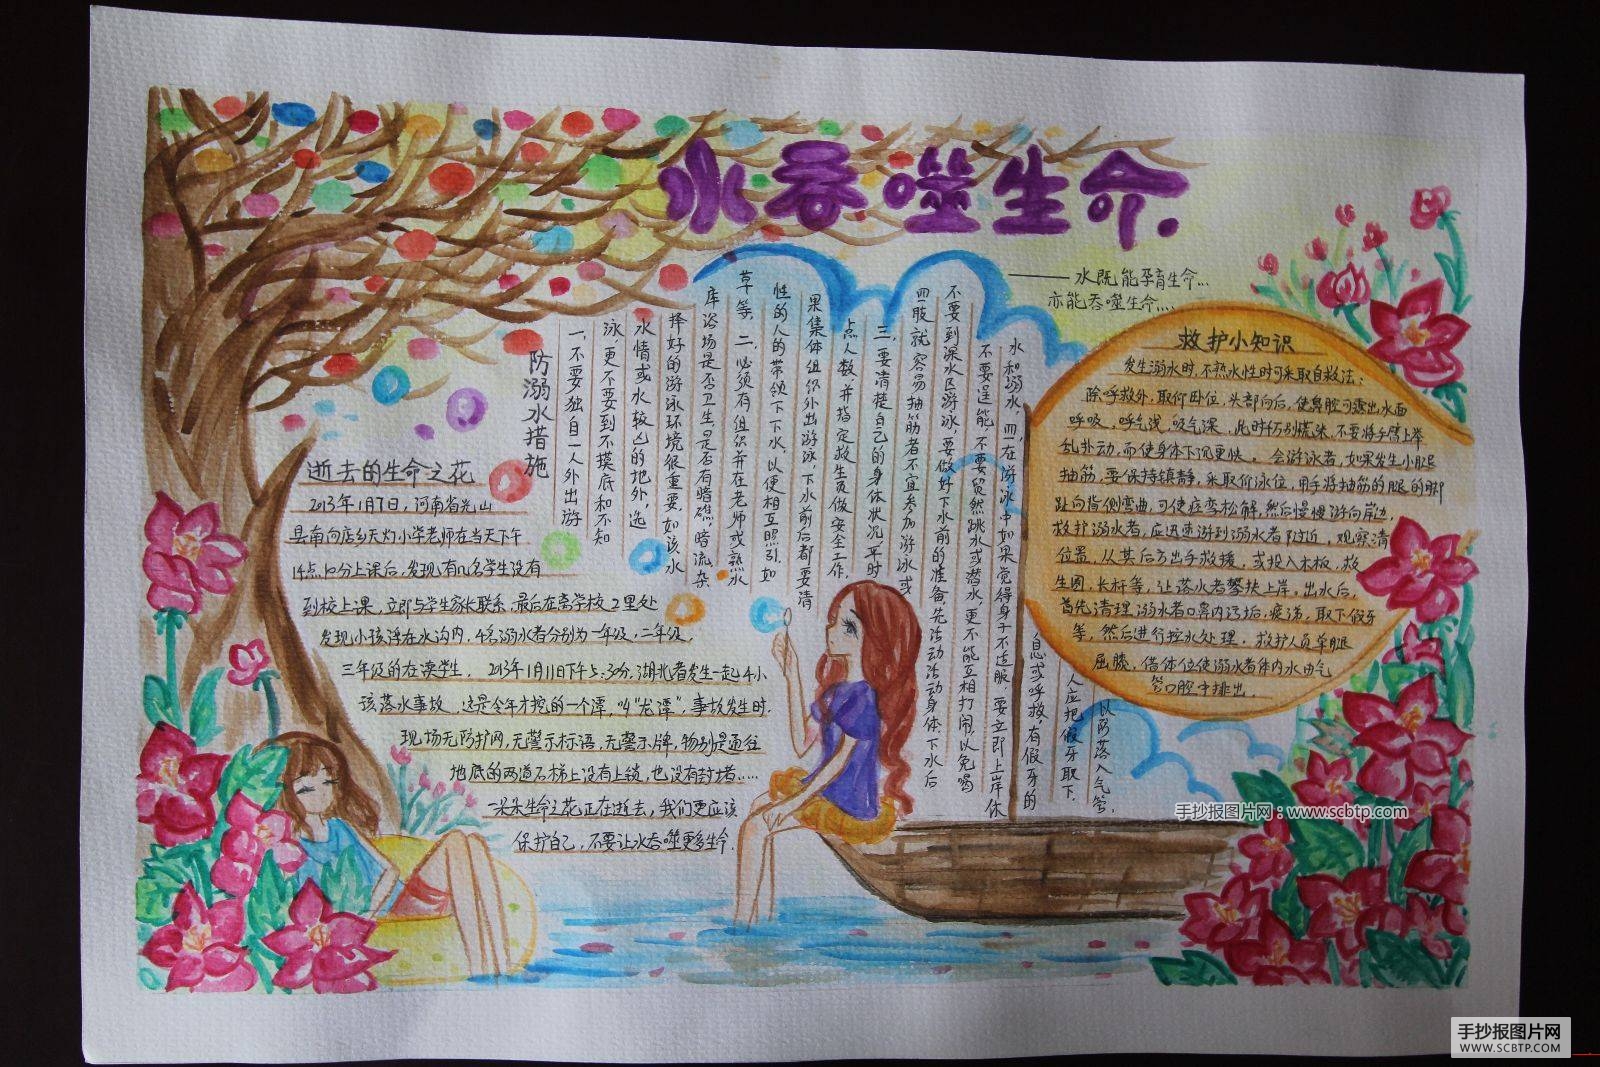 水吞噬生命.
——水既能孕育生命...
亦能吞噬生命...
逝去的生命之花
2013年1月7日，河南省光山
县南向店乡天灯小学老师在当天下午
14点10分上课后，发现有几名学生没有
到校上课，立即与学生家长联系，最后在离学校2里处
发现小孩浮在水沟内，4名溺水者分别为一年级，二年级，
三年级的在读学生．2013年1月11日下午5:30分，湖北省发生一起4小
孩落水事故，这是今年才挖的一个潭，叫“龙潭”，事故发生时，
现场无防护网，无警示标语，无警示牌，特别是通往
地底的两道石梯上没有上锁，也没有封堵……
一朵朵生命之花正在逝去，我们更应该
保护自己，不要让水吞噬更多生命．
防溺水措施
一、不要独自一人外出游
泳，更不要到不摸底和不知
水情或水较凶的地外，选
择好的游泳环境很重要，如该水
库浴场是否卫生，是否有暗礁，暗流，杂
草等．二、必须有组织并在老师或熟水
性的人的带领下下水，以便相互照引，如
果集体组织外出游泳，下水前后都要清
点人数，并指定救生员做安全工作．
三、要清楚自己的身体状况，平时
四肢就容易抽筋者不宜参加游泳或
不要到深水区游泳，要做好下水前的准备，先活动活动身体，下水后
不要逞能，不要贸然跳水或潜水，更不能互相打闹，以免喝
水和溺水．四、在游泳中如果觉得身子不适服，要立即上岸休
息或呼救，有假牙的
人应把假牙取下，
以防落入气管．
救护小知识
发生溺水时，不熟水性时可采取自救法：
除呼救外，取仰卧位，头部向后，使鼻腔可露出水面
呼吸，呼气浅，吸气深．此时千万别慌张，不要将手臂上举
乱扑动，而使身体下沉更快．会游泳者，如果发生小腿
抽筋，要保持镇静，采取仰泳位，用手将抽筋的腿的脚
趾向背侧弯曲，可使痉挛松解，然后慢慢游向岸边，
救护溺水者，应迅速游到溺水者附近，观察清
位置，从其后方出手救援，或投入木板，救
生圈，长杆等，让落水者攀扶上岸，出水后，
首先清理溺水者口鼻内污垢，痰涕，取下假牙
等，然后进行控水处理，救护人员单腿
屈膝，借体位使溺水者体内水由气
管口腔中排出．
手抄报图片网：www.scbtp.com
手抄报图片网
WWW.SCBTP.COM